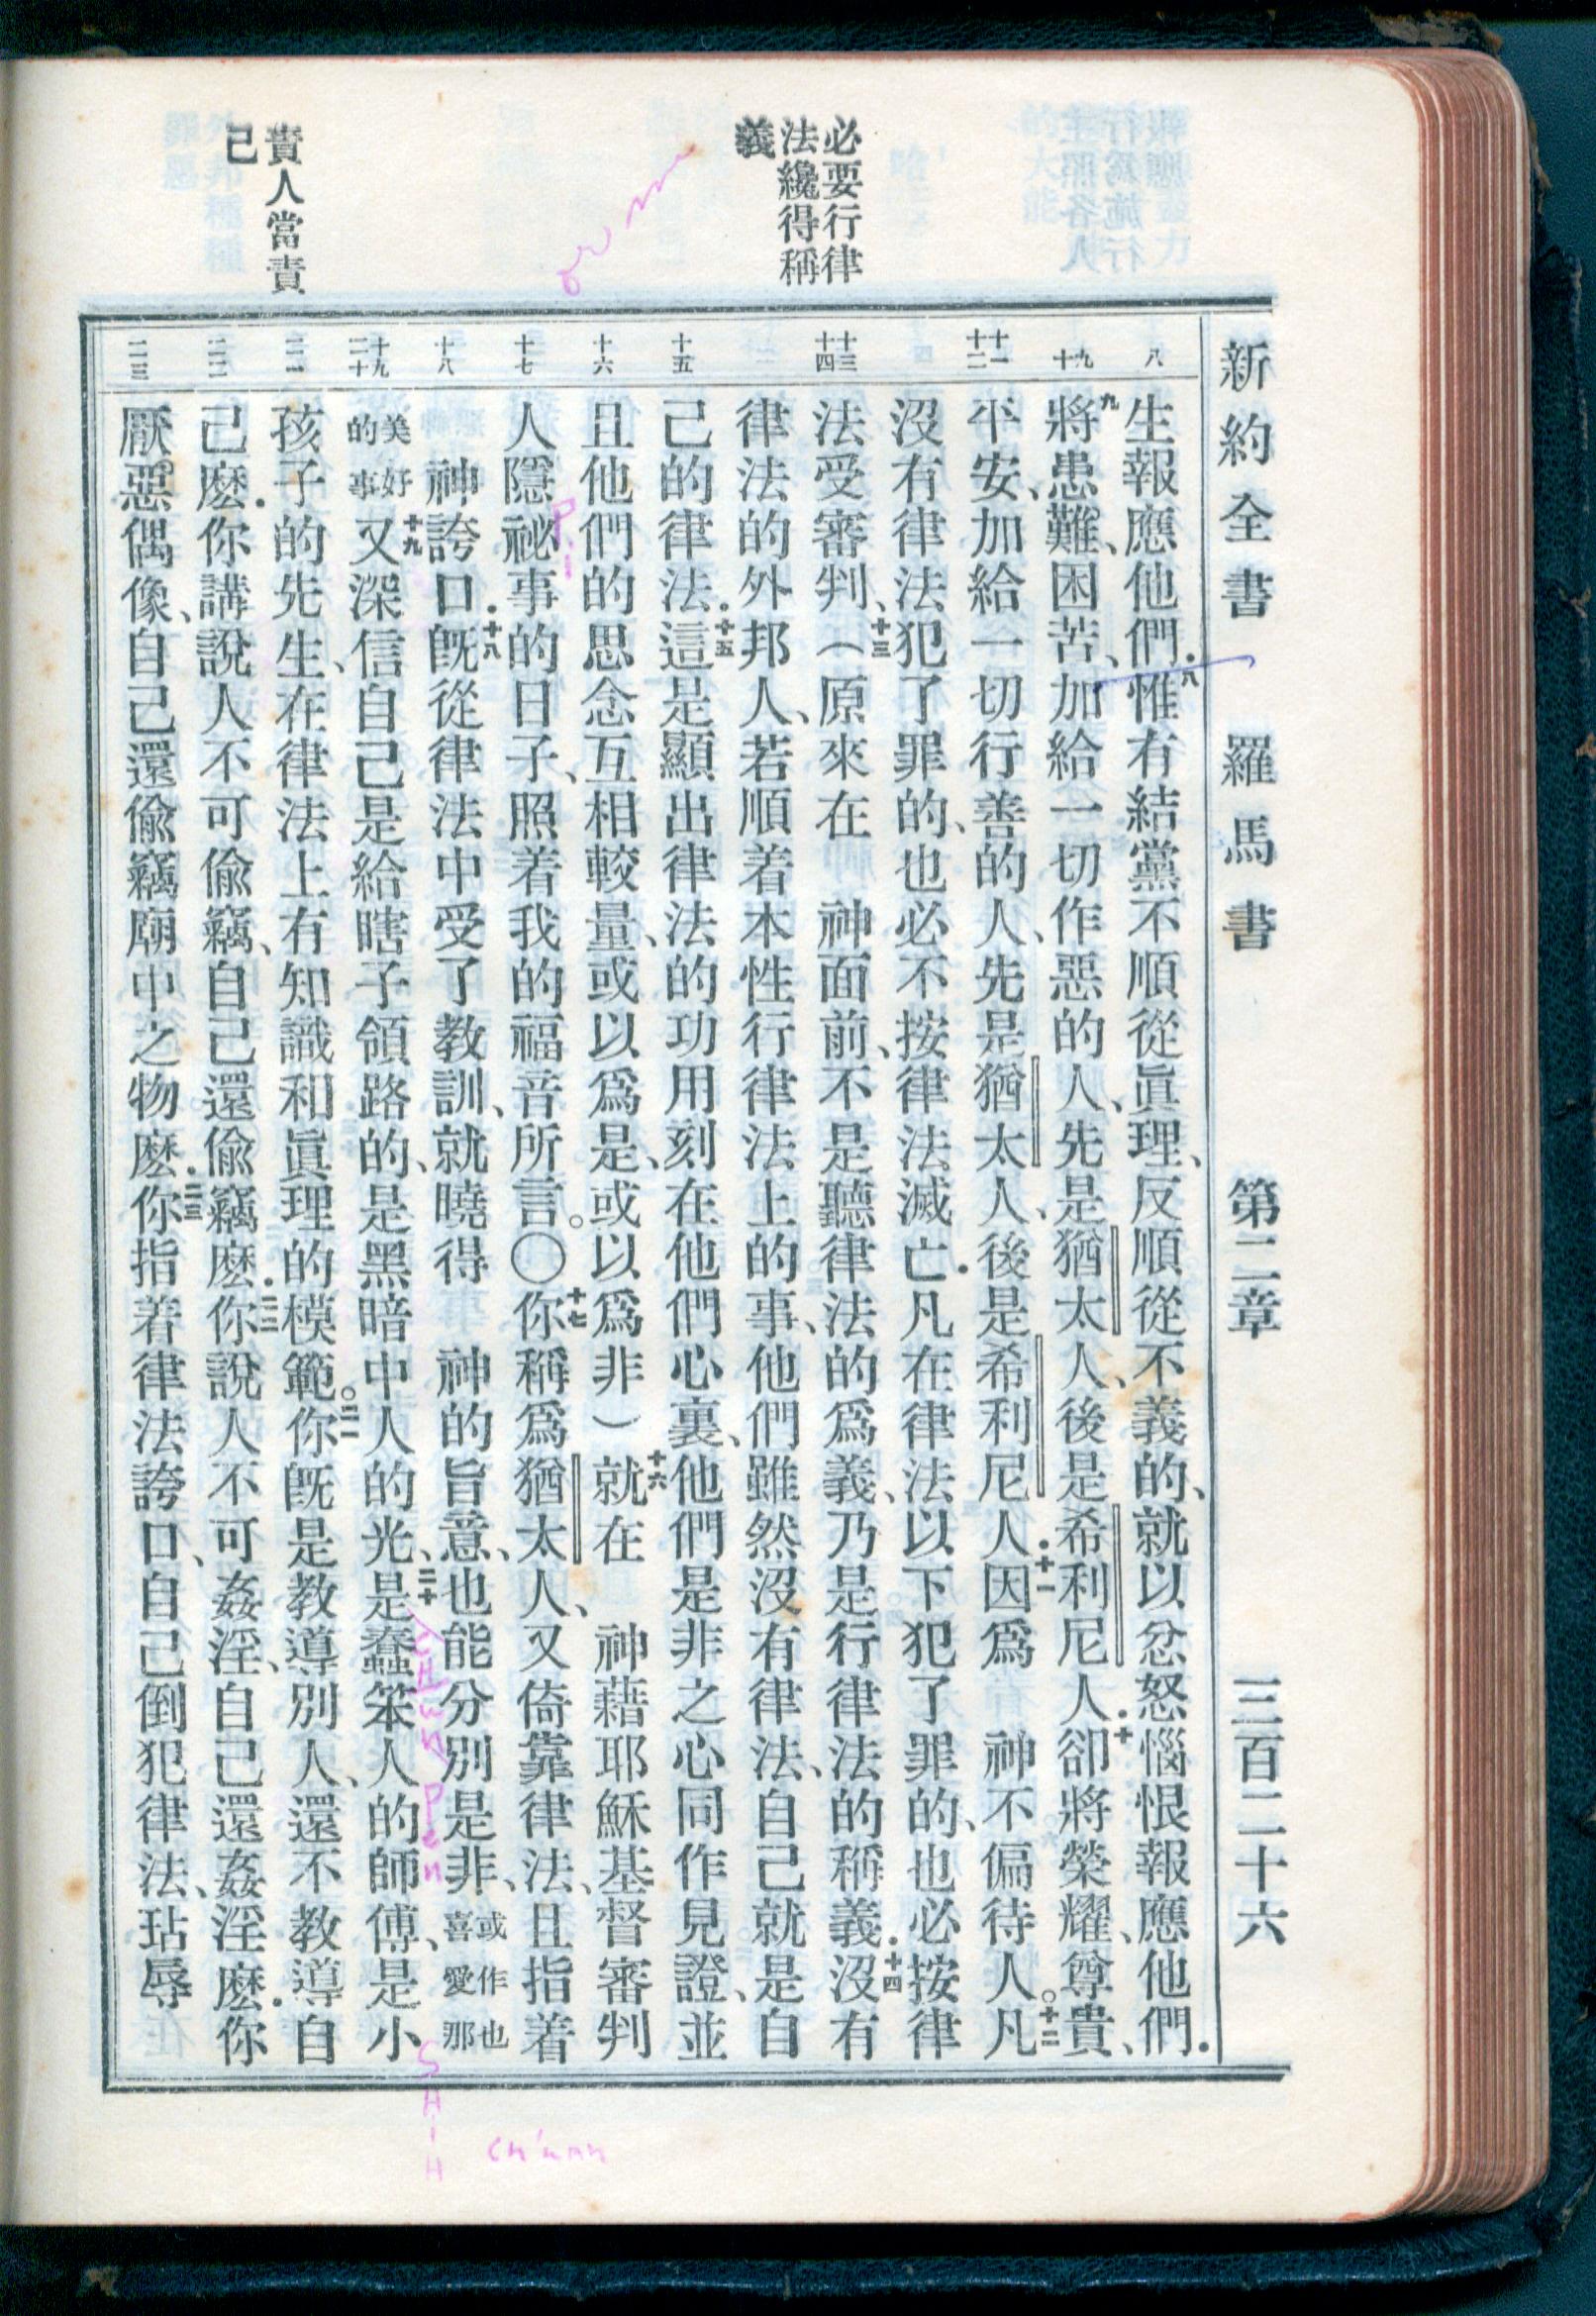 新約全書 羅馬書 第二章 三百二十六
必要行律
法纔得稱
義
責人當責
己
八
九
十
十一
十二
十三
十四
十五
十六
十七
十八
十九
二十
二一
二二
二三
生報應他們．八惟有結黨不順從眞理、反順從不義的、就以忿怒惱恨報應他們．
九將患難、困苦、加給一切作惡的人、先是猶太人、後是希利尼人．十卻將榮耀、尊貴、
平安、加給一切行善的人、先是猶太人、後是希利尼人．十一因爲 神不偏待人。十二凡
沒有律法犯了罪的、也必不按律法滅亡．凡在律法以下犯了罪的、也必按律
法受審判、十三（原來在 神面前、不是聽律法的爲義、乃是行律法的稱義．十四沒有
律法的外邦人、若順着本性行律法上的事、他們雖然沒有律法、自己就是自
己的律法．十五這是顯出律法的功用刻在他們心裏、他們是非之心同作見證、並
且他們的思念互相較量、或以爲是、或以爲非）十六就在 神藉耶穌基督審判
人隱祕事的日子、照着我的福音所言。〇十七你稱爲猶太人、又倚靠律法、且指着
神誇口．十八旣從律法中受了教訓、就曉得 神的旨意、也能分別是非、或作也喜愛那
美好的事十九又深信自己是給瞎子領路的、是黑暗中人的光、二十是蠢笨人的師傅、是小
孩子的先生、在律法上有知識和眞理的模範。二一你旣是教導別人、還不教導自
己麽．你講說人不可偷竊、自己還偷竊麽．二二你說人不可姦淫、自己還姦淫麽．你
厭惡偶像、自己還偷竊廟中之物麽．二三你指着律法誇口、自己倒犯律法、玷辱
or m
Pi
CHun
Pen
SHIH
ch'uan